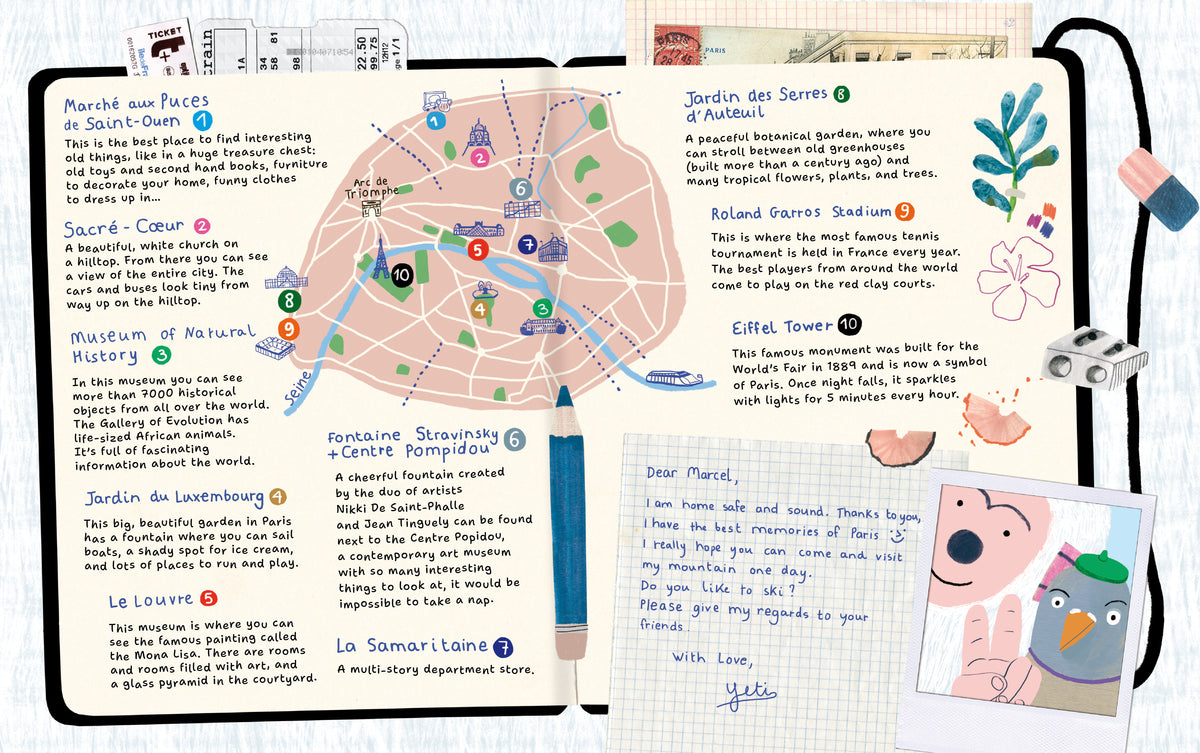 TICKET
t+
crain
1A
34 81
58
98
0104071054
22.50
99.75
12H12
1/1
PARIS
PARIS
Marché aux Puces
de Saint-Ouen 1
This is the best place to find interesting
old things, like in a huge treasure chest:
old toys and second hand books, furniture
to decorate your home, funny clothes
to dress up in...
Sacré-Cœur 2
A beautiful, white church on
a hilltop. From there you can see
a view of the entire city. The
cars and buses look tiny from
way up on the hilltop.
Museum of Natural
History 3
In this museum you can see
more than 7000 historical
objects from all over the world.
The Gallery of Evolution has
life-sized African animals.
It's full of fascinating
information about the world.
Jardin du Luxembourg 4
This big, beautiful garden in Paris
has a fountain where you can sail
boats, a shady spot for ice cream,
and lots of places to run and play.
Le Louvre 5
This museum is where you can
see the famous painting called
the Mona Lisa. There are rooms
and rooms filled with art, and
a glass pyramid in the courtyard.
1
2
Arc de
Triomphe
6
5
7
10
8
4
3
9
Seine
Fontaine Stravinsky
+ Centre Pompidou 6
A cheerful fountain created
by the duo of artists
Nikki De Saint-Phalle
and Jean Tinguely can be found
next to the Centre Popidou,
a contemporary art museum
with so many interesting
things to look at, it would be
impossible to take a nap.
La Samaritaine 7
A multi-story department store.
Jardin des Serres 8
d'Auteuil
A peaceful botanical garden, where you
can stroll between old greenhouses
(built more than a century ago) and
many tropical flowers, plants, and trees.
Roland Garros Stadium 9
This is where the most famous tennis
tournament is held in France every year.
The best players from around the world
come to play on the red clay courts.
Eiffel Tower 10
This famous monument was built for the
World's Fair in 1889 and is now a symbol
of Paris. Once night falls, it sparkles
with lights for 5 minutes every hour.
Dear Marcel,
I am home safe and sound. Thanks to you,
I have the best memories of Paris
I really hope you can come and visit
my mountain one day.
Do you like to ski?
Please give my regards to your
friends.
With Love,
Yeti